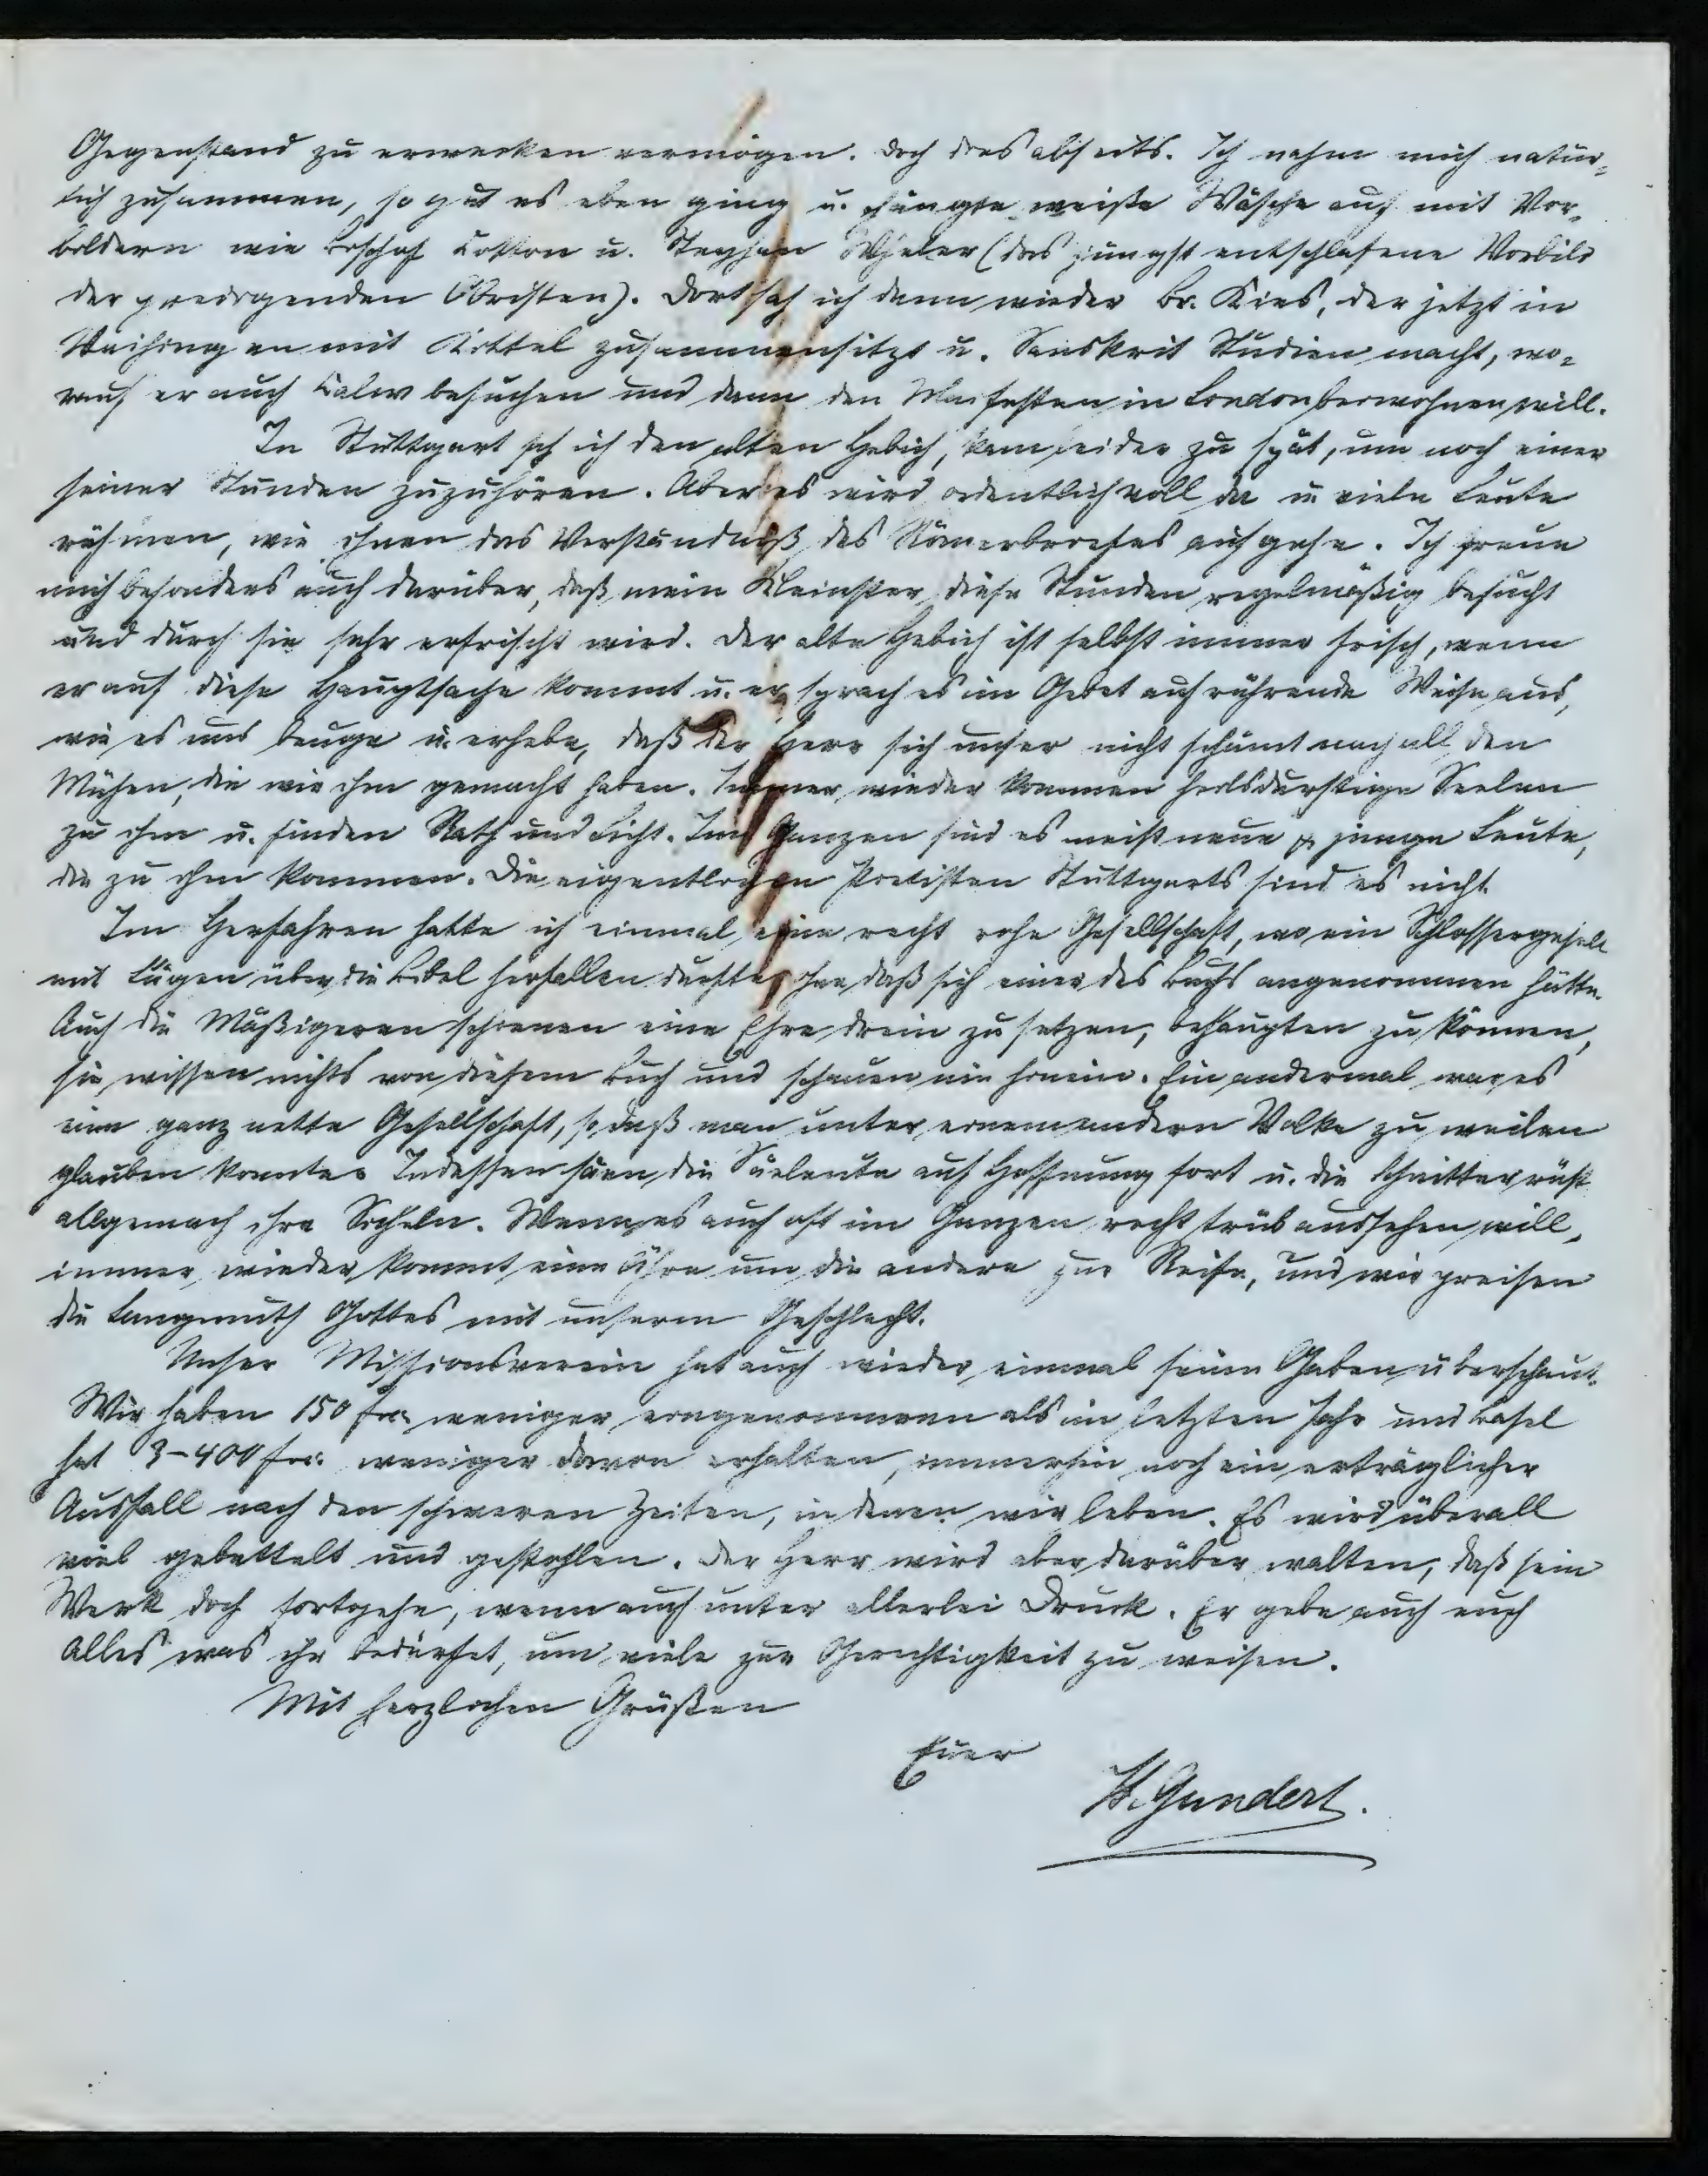 Gegenstand zu erwecken vermögen. Doch dies abseits. Ich nahm mich natür-
lich zusammen, so gut es eben ging u. hängte weiße Wäsche auf mit Vor-
bildern wie Bischof Cotton u. Stephan Wheler (das jüngst entschlafene Vorbild
der predigenden Obristen). Dort sah ich dann wieder Br. Kies, der jetzt in
Vaihingen mit Kittel zusammensitzt u. Sanskrit Studien macht, wo-
rauf er auch Calw besuchen und dann den Maifesten in London beiwohnen will.
In Stuttgart sah ich den alten Hebich, kam leider zu spät, um noch einer
seiner Stunden zuzuhören. Aber es wird ordentlich voll da u. viele Leute
rühmen, wie ihnen das Verständniß des Römerbriefes aufgehe. Ich freue
mich besonders auch darüber, daß mein Kleinster diese Stunden regelmäßig besucht
und durch sie sehr erfrischt wird. Der alte Hebich ist selbst immer frisch, wenn
er auf diese Hauptsache kommt u. er sprach es im Gebet auf rührende Weise aus,
wie es uns beuge u. erhebe, daß der Herr sich unser nicht schämt nach all den
Mühen, die wir ihm gemacht haben. Immer wieder kommen heilsdurstige Seelen
zu ihm u. finden Rath und Licht. Im Ganzen sind es meist neue & junge Leute,
die zu ihm kommen. Die eigentlichen Pietisten Stuttgarts sind es nicht.
Im Herfahren hatte ich einmal eine recht rohe Gesellschaft, wo ein Schlossergesell
mit Lügen über die Bibel herfallen durfte, ohne daß sich einer des Buchs angenommen hätte.
Auch die Mäßigeren schienen eine Ehre drein zu setzen, behaupten zu können,
sie wissen nichts von diesem Buch und schauen nie hinein. Ein andermal war es
eine ganz nette Gesellschaft, so daß man unter einem andern Volke zu weilen
glauben konnte. Indessen säen die Säeleute auf Hoffnung fort u. die Schnitter rüst
allgemach ihre Sicheln. Wenn es auch oft im Ganzen recht trüb aussehen will,
immer wieder kommt eine Ähre um die andere zur Reife, und wir preisen
die Langmuth Gottes mit unserm Geschlecht.
Unser Missionsverein hat auch wieder einmal seine Gaben überschaut.
Wir haben 150 frs. weniger eingenommen als im letzten Jahr und Basel
hat 3-400 frs. weniger davon erhalten, immerhin noch ein erträglicher
Ausfall nach den schweren Zeiten, in denen wir leben. Es wird überall
viel gebettelt und gestohlen. Der Herr wird aber darüber walten, daß sein
Werk doch fortgehe, wenn auch unter allerlei Druck. Er gebe auch euch
Alles was ihr bedürfet, um viele zur Gerechtigkeit zu weisen.
Mit herzlichen Grüßen
Euer
H. Gundert.